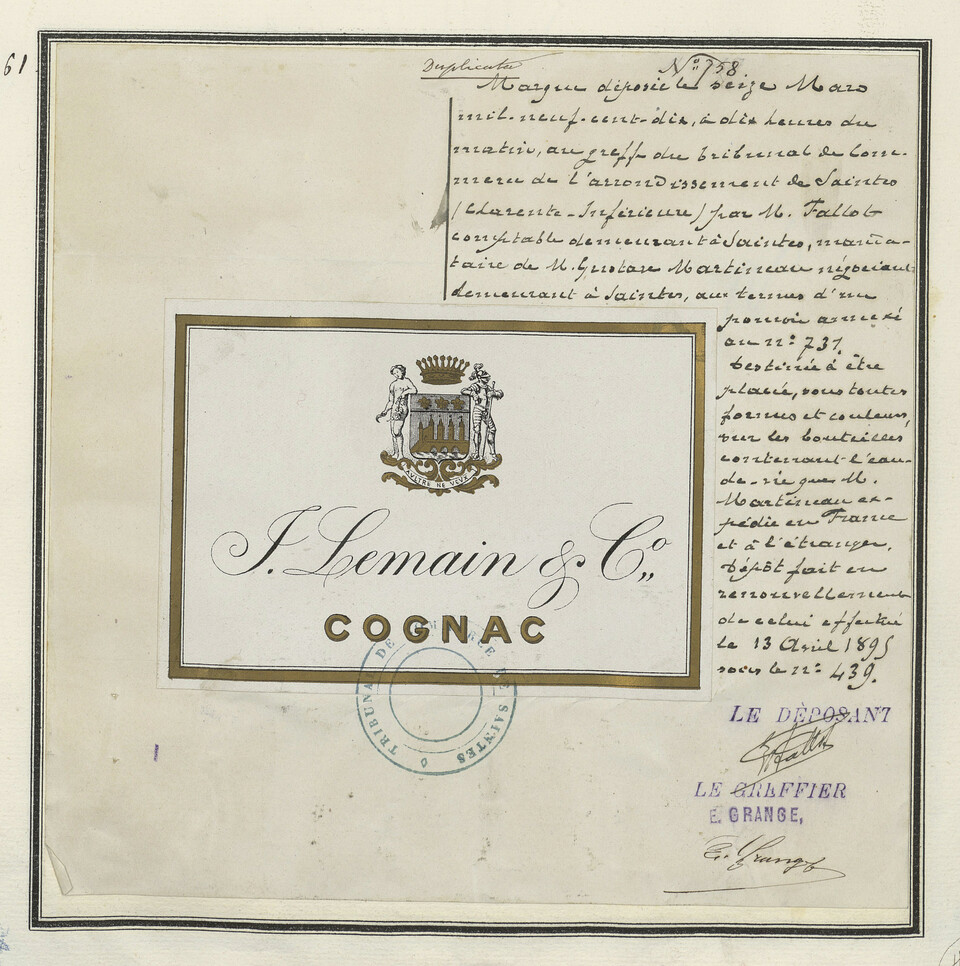 61
Duplicata
N° 758
Marque déposée le seize Mars
mil-neuf-cent-dix, à dix heures du
matin, au greffe du tribunal de Com-
merce de l'arrondissement de Saintes
(Charente-Inférieure) par M. Fallot
comptable demeurant à Saintes, manda-
taire de M. Gustave Martineau négociant
demeurant à Saintes, aux termes d'un
pouvoir annexé
au n° 731.
Destinée à être
placée, sous toutes
formes et couleurs,
sur les bouteilles
contenant l'eau-
de-vie que M.
Martineau ex-
pédie en France
et à l'étranger.
Dépôt fait en
renouvellement
de celui effectué
le 13 Avril 1895
sous le n° 439.
AULTRE NE VEUX
J. Lemain & Co,,
COGNAC
TRIBUNAL DE COMMERCE DE SAINTES
LE DÉPOSANT
Fallot
LE GREFFIER
E. GRANGE,
E. Grange